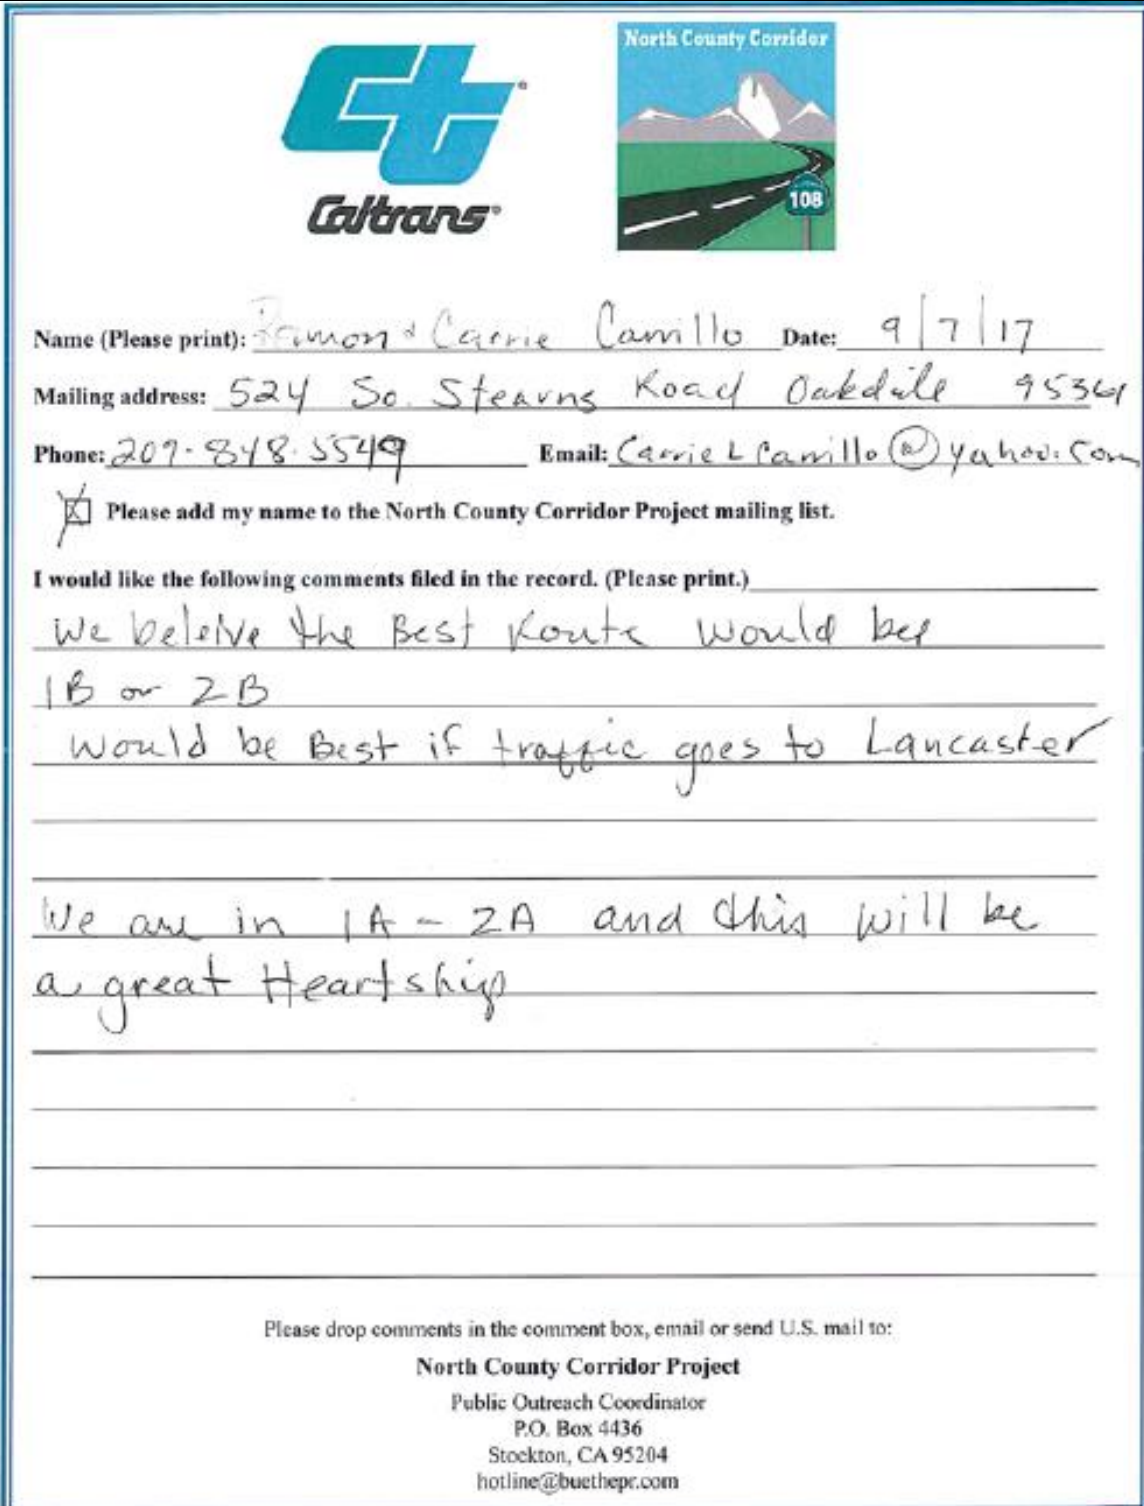 Caltrans®
North County Corridor
108
Name (Please print): Ramon & Carrie Carrillo Date: 9/7/17
Mailing address: 524 So. Stearns Road Oakdale 95361
Phone: 209-848-5549 Email: Carrie L Carrillo@yahoo.com
Please add my name to the North County Corridor Project mailing list.
I would like the following comments filed in the record. (Please print.)
We beleive the Best Route would be
1B or 2B
Would be Best if traffic goes to Lancaster
We are in 1A - 2A and this will be
a great Heartship
Please drop comments in the comment box, email or send U.S. mail to:
North County Corridor Project
Public Outreach Coordinator
P.O. Box 4436
Stockton, CA 95204
hotline@buethepr.com